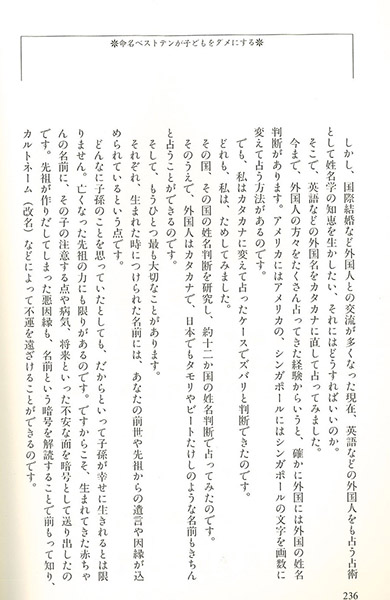 ※命名ベストテンが子どもをダメにする※
しかし、国際結婚など外国人との交流が多くなった現在、英語などの外国人をも占う占術
として姓名学の知恵を生かしたい、それにはどうすればいいのか。
そこで、英語などの外国名をカタカナに直して占ってみました。
今まで、外国人の方々をたくさん占ってきた経験からいうと、確かに外国には外国の姓名
判断があります。アメリカにはアメリカの、シンガポールにはシンガポールの文字を画数に
変えて占う方法があるのです。
でも、私はカタカナに変えて占ったケースでズバリと判断できたのです。
どれも、私は、ためしてみました。
その国、その国の姓名判断を研究し、約十二か国の姓名判断で占ってみたのです。
そのうえで、外国人はカタカナで、日本でもタモリやビートたけしのような名前もきちん
と占うことができるのです。
そして、もうひとつ最も大切なことがあります。
それぞれ、生まれた時につけられた名前には、あなたの前世や先祖からの遺言や因縁が込
められているという点です。
どんなに子孫のことを思っていたとしても、だからといって子孫が幸せに生きれるとは限
りません。亡くなった先祖の力にも限りがあるのです。ですからこそ、生まれてきた赤ちゃ
んの名前に、その子の注意する点や病気、将来といった不安な面を暗号として送り出したの
です。先祖が作りだしてしまった悪因縁も、名前という暗号を解読することで前もって知り、
カルトネーム（改名）などによって不運を遠ざけることができるのです。
236